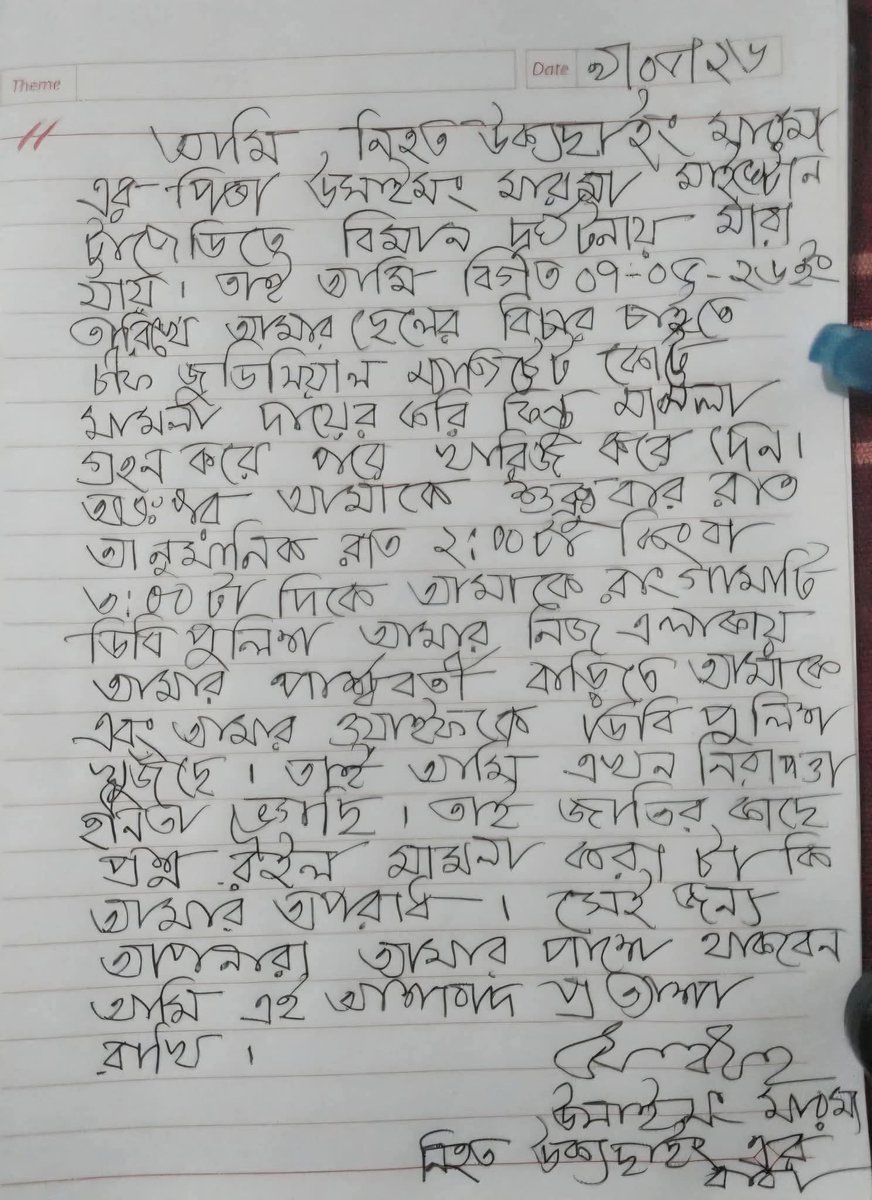 Theme
Date
আমি, নিহত উক্যছাইং মারমা
এর পিতা উসাইমং মারমা মাইলস্টোন
ট্রাজেডিতে বিমান দুর্ঘটনায় মারা
যায়। তাই আমি বিগত ০৭-০৫-২৬ইং
তারিখে আমার ছেলের বিচার চাইতে
চীফ জুডিসিয়াল ম্যাজিট্রেট কোর্টে
মামলা দায়ের করি কিন্তু মামলা
গ্রহন করে পরে খারিজ করে দেন।
অতঃপর আমাকে শুক্রুবার রাত
আনুমানিক রাত ২:০০টা কিংবা
৩:০০টা দিকে আমাকে রাংগামাটি
ডিবি পুলিশ আমার নিজ এলাকায়
আমার পার্শ্ববর্তী বাড়িতে আমাকে
এবং আমার ওয়াইফকে ডিবি পুলিশ
খুজছে। তাই আমি এখন নিরাপত্তা
হীনতা ভোগছি। তাই জাতির কাছে
প্রশ্ন রইল মামলা করা টা কি
আমার অপরাধ। সেই জন্য
আপনারা আমার পাশে থাকবেন
আমি এই আশাবাদ প্রত্যাশা
রাখি।
উসাইমং মারমা
নিহত উক্যছাইং এর
বাবা